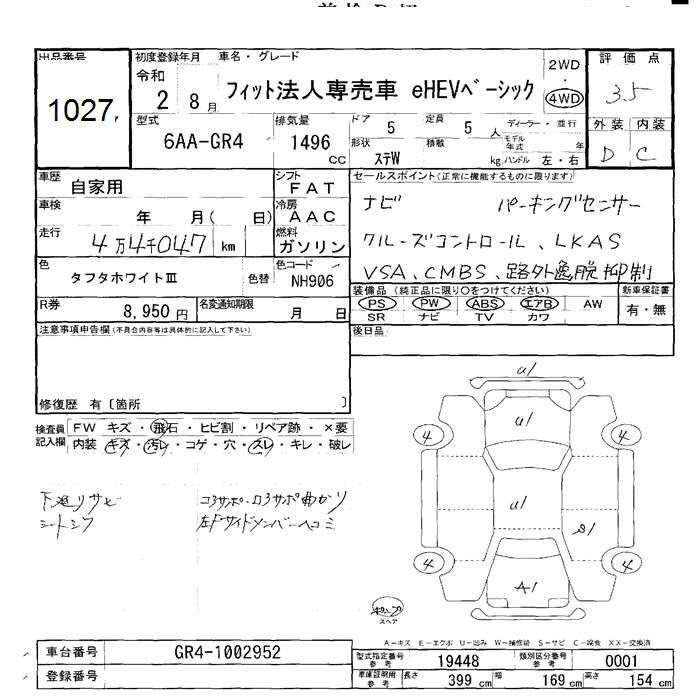 出品番号
1027
初度登録年月 車名・グレード
令和 2 8月
フィット法人専売車 eHEVベーシック
2WD
・
4WD
評価点
3.5
外装 内装
D C
型式
6AA-GR4
排気量
1496 CC
ドア 5
定員 5 人
形状 ステW
積載 kg
ディーラー・並行
モデル年式 年
ハンドル 左・右
車歴 自家用
シフト FAT
車検 年 月( 日)
冷房 AAC
走行 4万4千047 km
燃料 ガソリン
色 タフタホワイトⅢ 色替
色コード NH906
R券 8,950円
名変通知期限 月 日
セールスポイント(正常に機能するものに限ります)
ナビ パーキングセンサー
クルーズコントロール、LKAS
VSA、CMBS、路外逸脱抑制
装備品 (純正品に限り○をつけてください)
PS PW ABS エアB AW
SR ナビ TV カワ
新車保証書
有・無
後日品
注意事項申告欄(不具合内容等は具体的に記入して下さい)
修復歴 有〔箇所 〕
検査員記入欄
FW キズ・飛石・ヒビ割・リペア跡・×要
内装・キズ・汚レ・コゲ・穴・スレ・キレ・破レ
下廻りサビ
シートシワ
コアサポ・ロアサポ曲がり
左Fサイドメンバーヘコミ
U1
U1
4 4
U1
S1
4 4
A1
スペア
A-キズ E-エクボ U-凹み W-補修跡 S-サビ C-腐食 XX-交換済
車台番号 GR4-1002952
登録番号
型式指定番号 参考 19448
類別区分番号 参考 0001
車庫証明用 参考 長さ 399 cm 幅 169 cm 高さ 154 cm